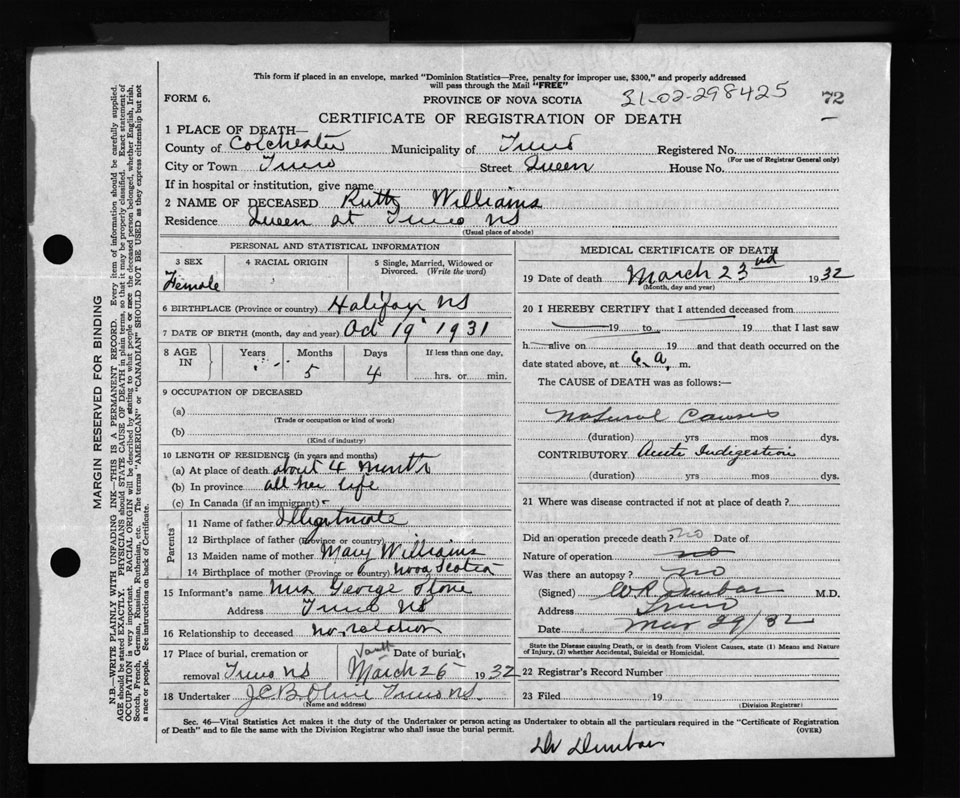 This form if placed in an envelope, marked "Dominion Statistics—Free, penalty for improper use, $300," and properly addressed
will pass through the Mail "FREE"
FORM 6.
PROVINCE OF NOVA SCOTIA
31-02-298425
72
CERTIFICATE OF REGISTRATION OF DEATH
1 PLACE OF DEATH—
County of Colchester Municipality of Truro Registered No.
(For use of Registrar General only)
City or Town Truro Street Queen House No.
If in hospital or institution, give name
2 NAME OF DECEASED Ruth Williams
Residence Queen st Truro NS
(Usual place of abode)
PERSONAL AND STATISTICAL INFORMATION
3 SEX 4 RACIAL ORIGIN 5 Single, Married, Widowed or
Divorced. (Write the word)
Female
6 BIRTHPLACE (Province or country) Halifax NS
7 DATE OF BIRTH (month, day and year) Oct 19 1931
8 AGE IN Years Months Days If less than one day,
5 4 hrs. or min.
9 OCCUPATION OF DECEASED
(a)
(Trade or occupation or kind of work)
(b)
(Kind of industry)
10 LENGTH OF RESIDENCE (in years and months)
(a) At place of death about 4 months
(b) In province all her life
(c) In Canada (if an immigrant)
Parents
11 Name of father Illegitmate
12 Birthplace of father (Province or country)
13 Maiden name of mother Mary Williams
14 Birthplace of mother (Province or country) Nova Scotia
15 Informant's name Mrs George Stone
Address Truro NS
16 Relationship to deceased no relation
17 Place of burial, cremation or Vault Date of burial,
removal Truro NS March 25 1932
18 Undertaker J.C.B. Olive Truro NS
(Name and address)
MEDICAL CERTIFICATE OF DEATH
19 Date of death March 23rd 1932
(Month, day and year)
20 I HEREBY CERTIFY that I attended deceased from
19 to 19 that I last saw
h alive on 19 and that death occurred on the
date stated above, at 6 a. m.
The CAUSE of DEATH was as follows:
Natural Causes
(duration) yrs mos dys.
CONTRIBUTORY Acute Indigestion
(duration) yrs mos dys.
21 Where was disease contracted if not at place of death?
Did an operation precede death? no Date of
Nature of operation no
Was there an autopsy? no
(Signed) Dunbar M.D.
Address Truro
Date Mar 29/32
State the Disease causing Death, or in death from Violent Causes, state (1) Means and Nature
of Injury, (2) whether Accidental, Suicidal or Homicidal.
22 Registrar's Record Number
23 Filed 19
(Division Registrar)
Sec. 46—Vital Statistics Act makes it the duty of the Undertaker or person acting as Undertaker to obtain all the particulars required in the "Certificate of Registration
of Death" and to file the same with the Division Registrar who shall issue the burial permit.
(OVER)
Dr Dunbar
MARGIN RESERVED FOR BINDING
N.B—WRITE PLAINLY WITH UNFADING INK—THIS IS A PERMANENT RECORD. Every item of information should be carefully supplied.
AGE should be stated EXACTLY. PHYSICIANS should STATE CAUSE OF DEATH in plain terms, so that it may be properly classified. Exact statement of
OCCUPATION is very important. RACIAL ORIGIN will be described by stating to what people or race the deceased person belonged, whether English, Irish,
Scotch, French, German, Russian, Ruthenian, etc. The terms "AMERICAN" or "CANADIAN" SHOULD NOT BE USED as they express citizenship but not
a race or people. See instructions on back of Certificate.